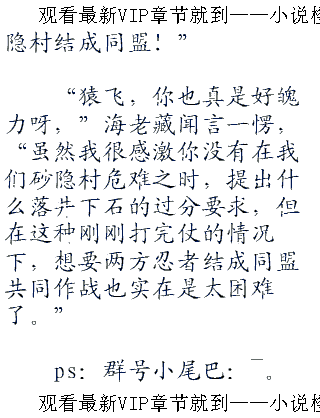 观看最新VIP章节就到——小说
隐村结成同盟！”
“猿飞，你也真是好魄
力呀，”海老藏闻言一愣，
“虽然我很感激你没有在我
们砂隐村危难之时，提出什
么落井下石的过分要求，但
在这种刚刚打完仗的情况
下，想要两方忍者结成同盟
共同作战也实在是太困难
了。”
ps：群号小尾巴：¯。
观看最新VIP章节就到——小说